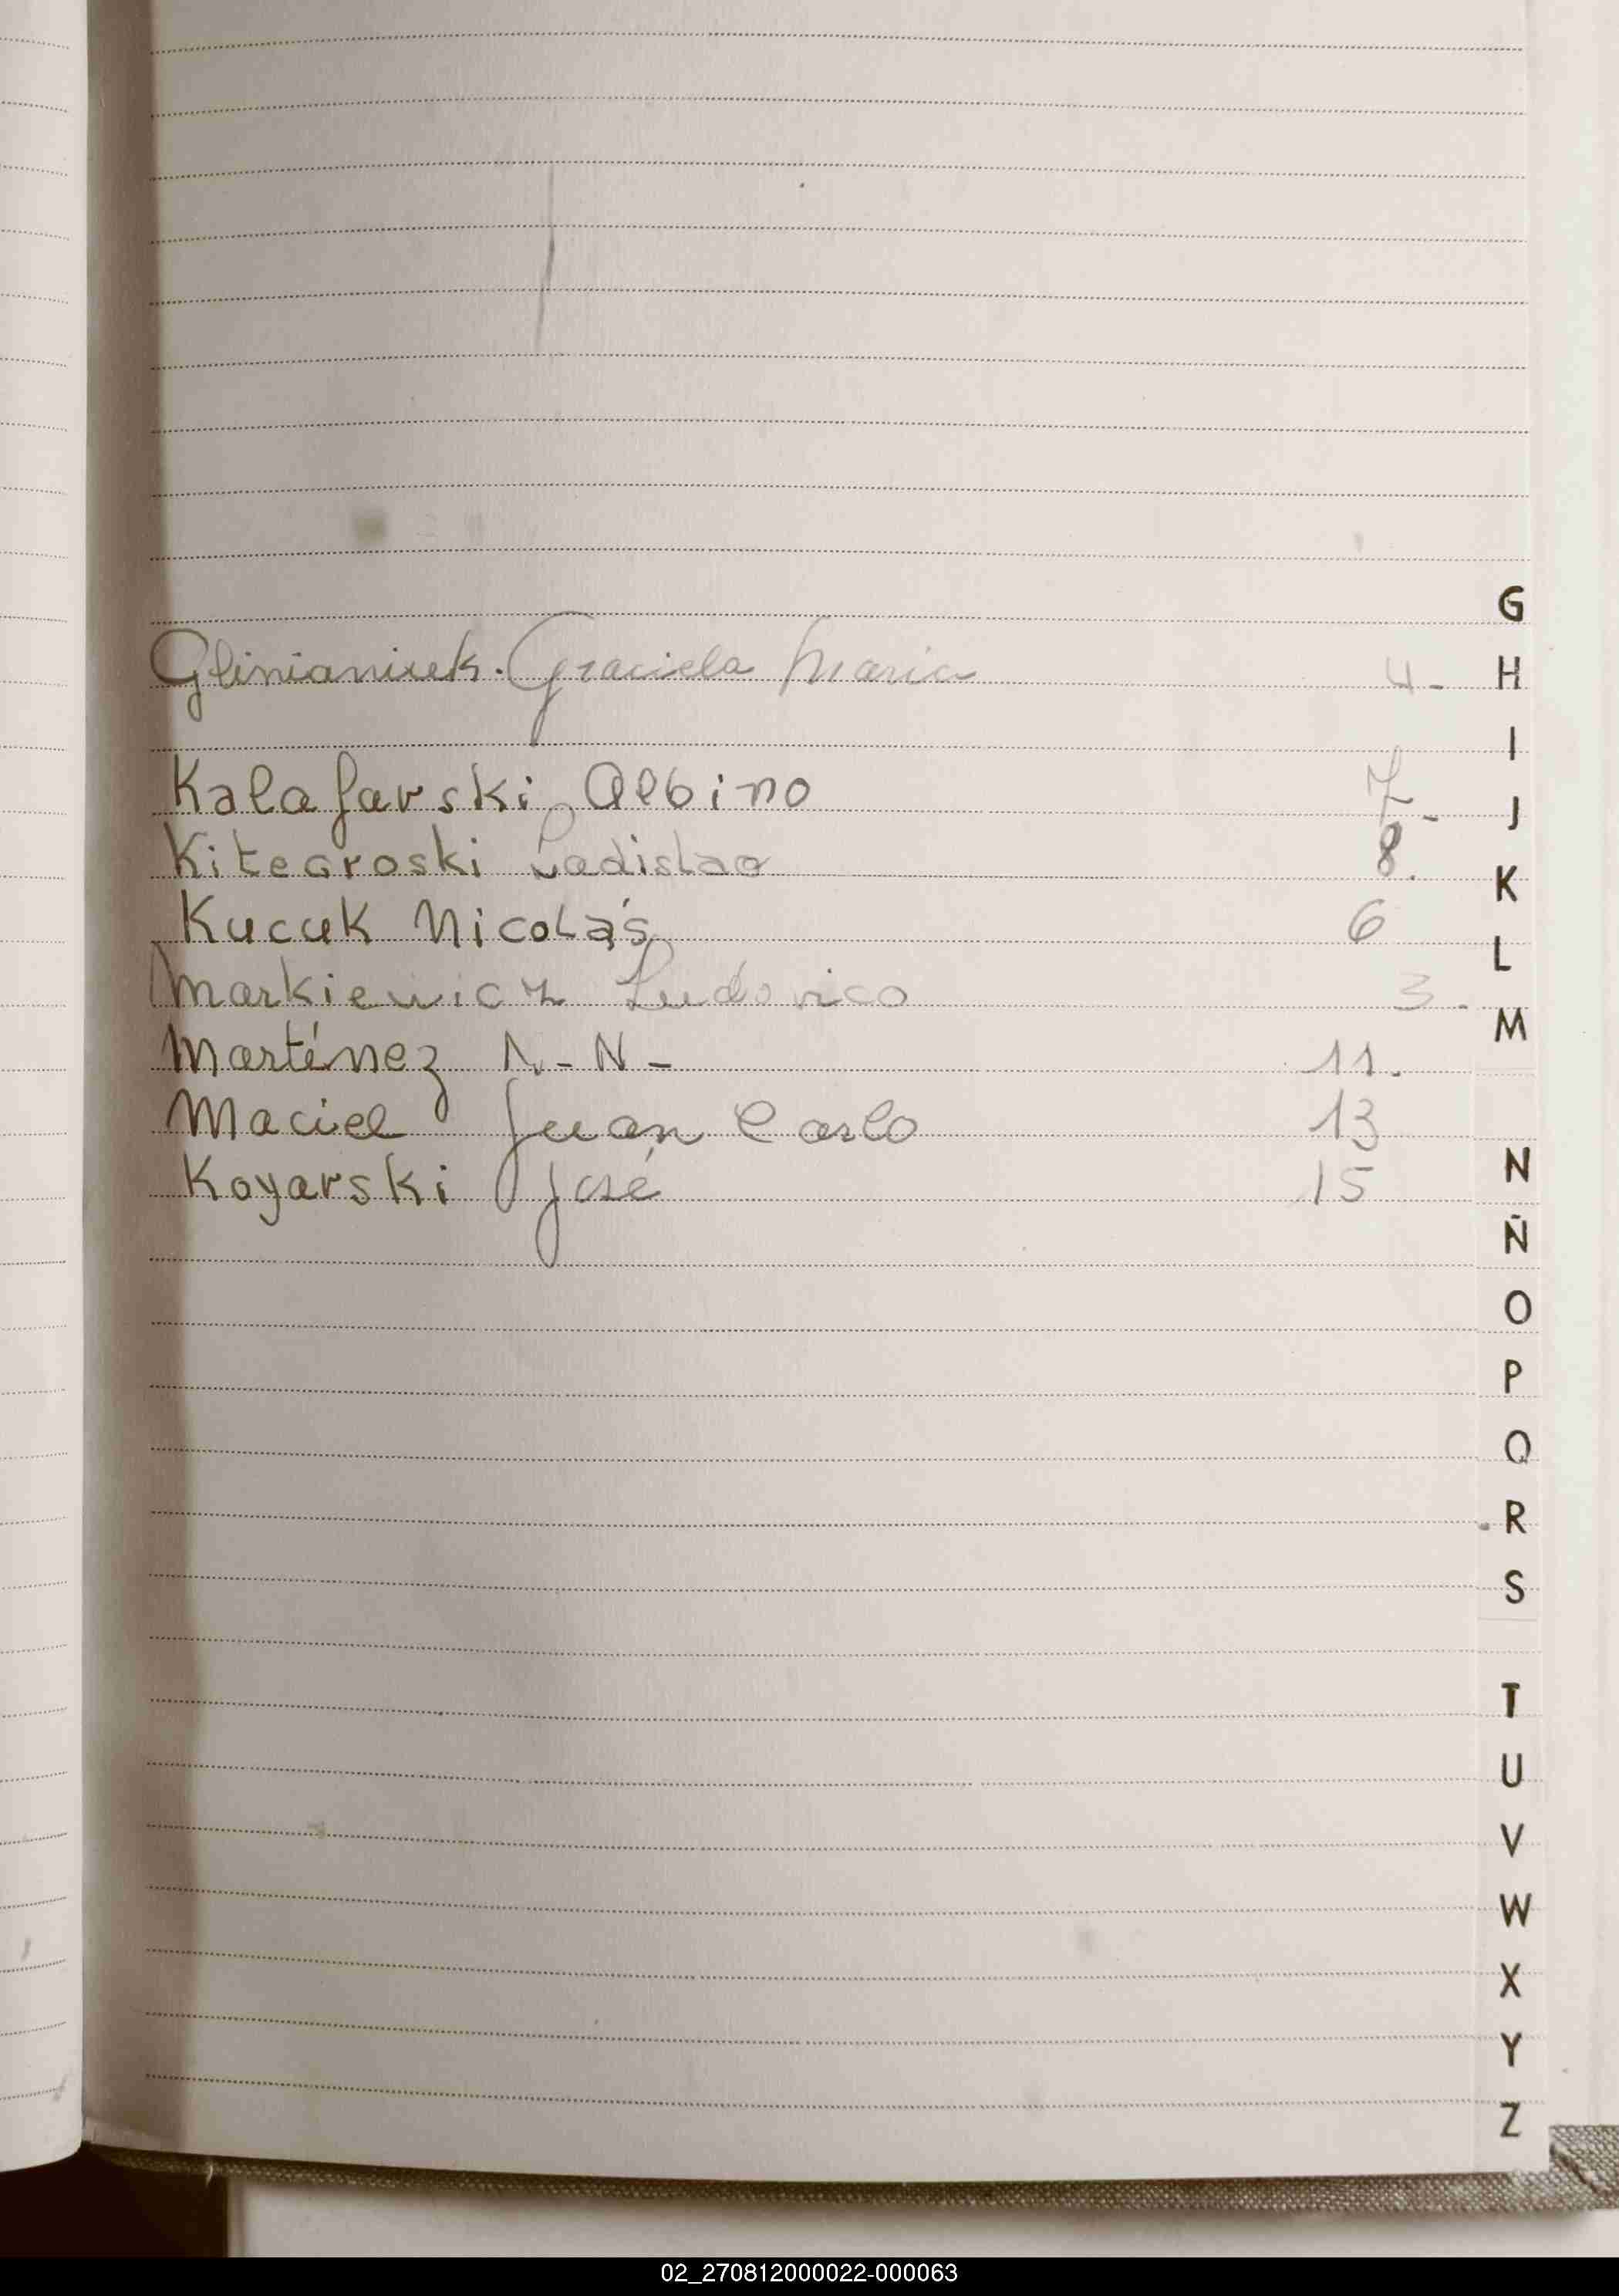 G
Glinianiuk. Graciela Maria 4-
H
I
Kalafarski Albino 7-
J
Kitegroski Ladislao 8.
K
Kucuk Nicolás 6
L
Markiewicz Ludovico 3.
M
Marténez N-N- 11.
Maciel Juan Carlo 13
N
Koyarski José 15
Ñ
O
P
Q
R
S
T
U
V
W
X
Y
Z
02_270812000022-000063